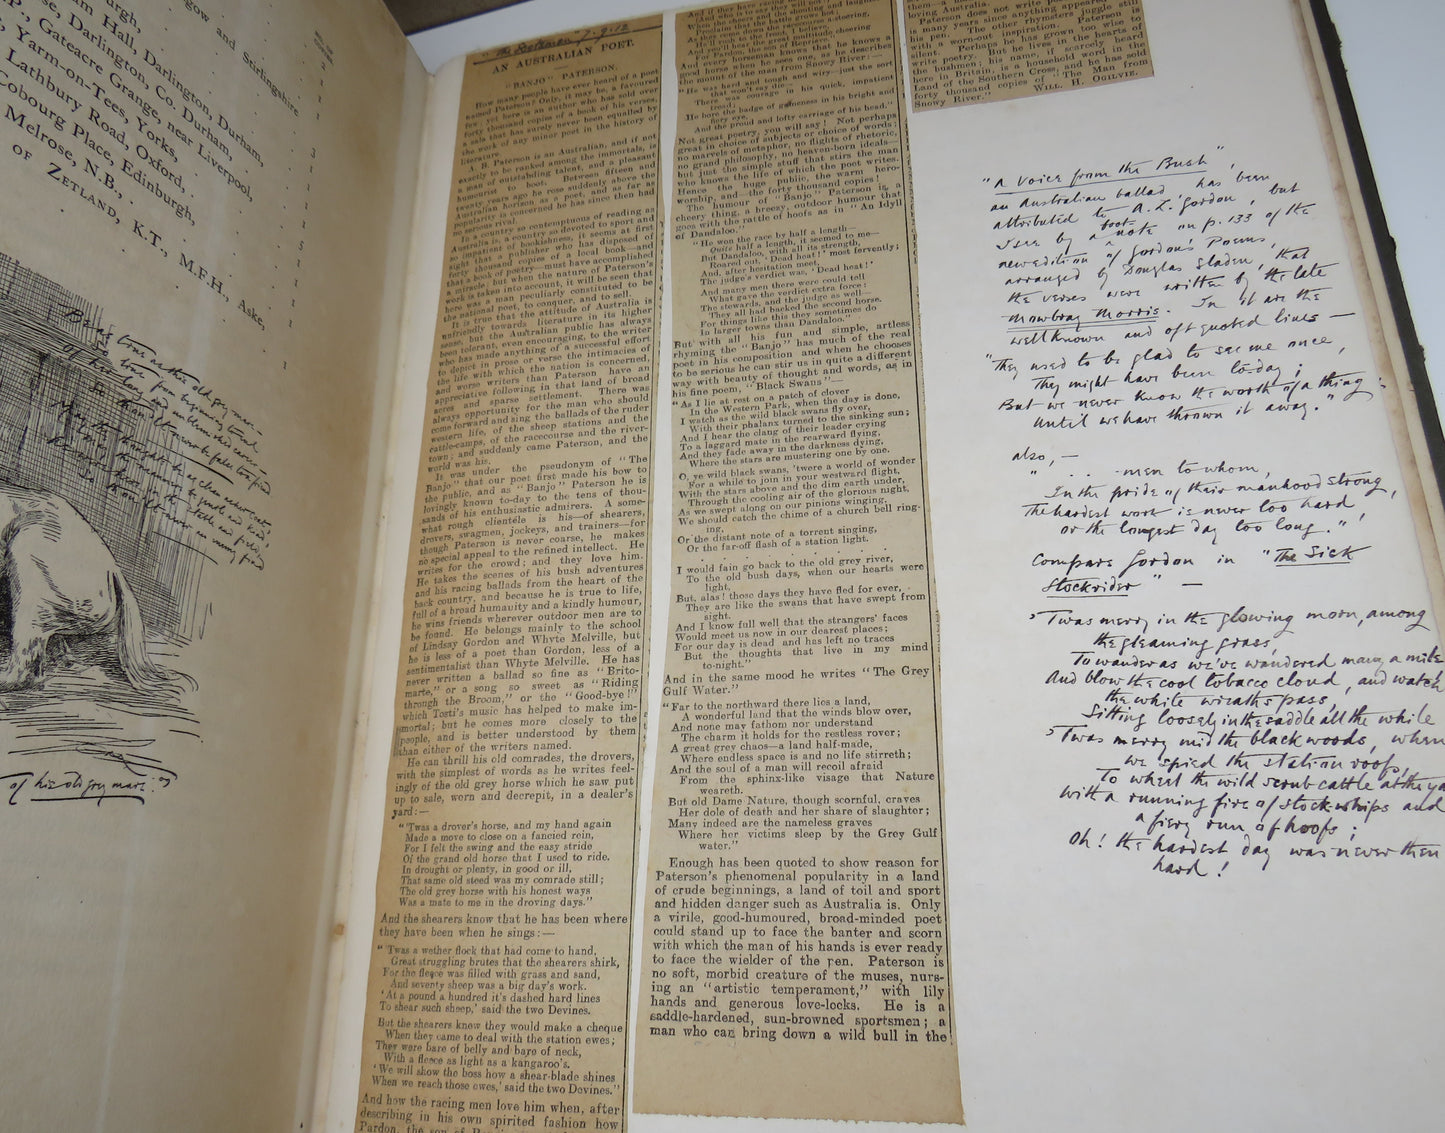 gow and Stirlingshire
burgh,
am Hall, Darlington, Durham,
se, Darlington, Co. Durham,
P., Gateacre Grange, near Liverpool,
Yarm-on-Tees, Yorks,
Lathbury Road, Oxford,
Cobourg Place, Edinburgh,
Melrose, N.B.,
OF ZETLAND, K.T., M.F.H., Aske,
of his old grey mare.
The Scotsman 7.9.12
AN AUSTRALIAN POET.
"BANJO" PATERSON.
How many people have ever heard of a poet
named Paterson? Only, it may be, a favoured
few; yet here is an author who has sold over
forty thousand copies of a book of his verses,
a sale that has surely never been equalled by
the work of any minor poet in the history of
literature.
A. B. Paterson is an Australian, and if not
exactly to be ranked among the immortals, is
a man of outstanding talent, and a pleasant
humourist to boot. Between fifteen and
twenty years ago he rose suddenly above the
Australian horizon as a poet, and as far as
popularity is concerned he has since then had
no serious rival.
In a country so contemptuous of reading as
Australia is, a country so devoted to sport and
so impatient of bookishness, it seems at first
sight that a publisher who has disposed of
forty thousand copies of a local book—and
that a book of poetry—must have accomplished
a miracle; but when the nature of Paterson's
work is taken into account, it will be seen that
here was a man peculiarly constituted to be
the national poet, to conquer, and to sell.
It is true that the attitude of Australia is
unfriendly towards literature in its higher
sense, but the Australian public has always
been tolerant, even encouraging, to the writer
who has made anything of a successful effort
to depict in prose or verse the intimacies of
the life with which the nation is concerned,
and worse writers than Paterson have an
appreciative following in that land of broad
acres and sparse settlement. There was
always opportunity for the man who should
come forward and sing the ballads of the ruder
western life, of the sheep stations and the
cattle-camps, of the racecourse and the river-
town; and suddenly came Paterson, and the
world was his.
It was under the pseudonym of "The
Banjo" that our poet first made his bow to
the public, and as "Banjo" Paterson he is
lovingly known to-day to the tens of thou-
sands of his enthusiastic admirers. A some-
what rough clientèle is his—of shearers,
drovers, swagmen, jockeys, and trainers—for
though Paterson is never coarse, he makes
no special appeal to the refined intellect. He
writes for the crowd; and they love him.
He takes the scenes of his bush adventures
and his racing ballads from the heart of the
back country, and because he is true to life,
full of a broad humanity and a kindly humour,
he wins friends wherever outdoor men are to
be found. He belongs mainly to the school
of Lindsay Gordon and Whyte Melville, but
he is less of a poet than Gordon, less of a
sentimentalist than Whyte Melville. He has
never written a ballad so fine as "Brito-
marte," or a song so sweet as "Riding
through the Broom," or the "Good-bye!"
which Tosti's music has helped to make im-
mortal; but he comes more closely to the
people, and is better understood by them
than either of the writers named.
He can thrill his old comrades, the drovers,
with the simplest of words as he writes feel-
ingly of the old grey horse which he saw put
up to sale, worn and decrepit, in a dealer's
yard:—
"'Twas a drover's horse, and my hand again
Made a move to close on a fancied rein,
For I felt the swing and the easy stride
Of the grand old horse that I used to ride.
In drought or plenty, in good or ill,
That same old steed was my comrade still;
The old grey horse with his honest ways
Was a mate to me in the droving days."
And the shearers know that he has been where
they have been when he sings:—
"'Twas a wether flock that had come to hand,
Great struggling brutes that the shearers shirk,
For the fleece was filled with grass and sand,
And seventy sheep was a big day's work.
'At a pound a hundred it's dashed hard lines
To shear such sheep,' said the two Devines.
But the shearers knew they would make a cheque
When they came to deal with the station ewes;
They were bare of belly and bare of neck,
With a fleece as light as a kangaroo's.
'We will show the boss how a shear-blade shines
When we reach those ewes,' said the two Devines."
And how the racing men love him when, after
describing in his own spirited fashion how
Pardon, the son of
Proclaim that the battle grows hot;
As they come down the racecourse a-steering,
He'll rush to the front, I believe;
And you'll hear the great multitude cheering
For Pardon, the son of Reprieve."
And every horseman feels that he knows a
good horse when he sees one, as he describes
the mount of the man from Snowy River:—
"He was hard and tough and wiry—just the sort
that won't say die—
There was courage in his quick, impatient
tread;
He bore the badge of gameness in his bright and
fiery eye,
And the proud and lofty carriage of his head."
Not great poetry, you will say! Not perhaps
great in choice of subjects or choice of words;
no marvels of metaphor, no flights of rhetoric,
no grand philosophy, no heaven-born ideals—
but just the simple stuff that stirs the man
who knows the life of which the poet writes.
Hence the huge public, the warm hero-
worship, and the forty thousand copies!
The humour of "Banjo" Paterson is a
cheery thing, a breezy, outdoor humour that
goes with the rattle of hoofs as in "An Idyll
of Dandaloo."
"He won the race by half a length—
Quite half a length, it seemed to me—
But Dandaloo, with all its strength,
Roared out, 'Dead heat!' most fervently;
And, after hesitation meet,
The judge's verdict was, 'Dead heat!'
And many men there were could tell
What gave the verdict extra force:
The stewards, and the judge as well—
They all had backed the second horse.
For things like this they sometimes do
In larger towns than Dandaloo."
But with all his fun and simple, artless
rhyming the "Banjo" has much of the real
poet in his composition and when he chooses
to be serious he can stir us in quite a different
way with beauty of thought and words, as in
his fine poem, "Black Swans"—
"As I lie at rest on a patch of clover
In the Western Park, when the day is done,
I watch as the wild black swans fly over,
With their phalanx turned to the sinking sun;
And I hear the clang of their leader crying
To a laggard mate in the rearward flying,
And they fade away in the darkness dying,
Where the stars are mustering one by one.
O, ye wild black swans, 'twere a world of wonder
For a while to join in your westward flight,
With the stars above and the dim earth under,
Through the cooling air of the glorious night.
As we swept along on our pinions winging,
We should catch the chime of a church bell ring-
ing,
Or the distant note of a torrent singing,
Or the far-off flash of a station light.
I would fain go back to the old grey river,
To the old bush days, when our hearts were
light,
But, alas! those days they have fled for ever,
They are like the swans that have swept from
sight.
And I know full well that the strangers' faces
Would meet us now in our dearest places;
For our day is dead and has left no traces
But the thoughts that live in my mind
to-night."
And in the same mood he writes "The Grey
Gulf Water."
"Far to the northward there lies a land,
A wonderful land that the winds blow over,
And none may fathom nor understand
The charm it holds for the restless rover;
A great grey chaos—a land half-made,
Where endless space is and no life stirreth;
And the soul of a man will recoil afraid
From the sphinx-like visage that Nature
weareth.
But old Dame Nature, though scornful, craves
Her dole of death and her share of slaughter;
Many indeed are the nameless graves
Where her victims sleep by the Grey Gulf
water."
Enough has been quoted to show reason for
Paterson's phenomenal popularity in a land
of crude beginnings, a land of toil and sport
and hidden danger such as Australia is. Only
a virile, good-humoured, broad-minded poet
could stand up to face the banter and scorn
with which the man of his hands is ever ready
to face the wielder of the pen. Paterson is
no soft, morbid creature of the muses, nurs-
ing an "artistic temperament," with lily
hands and generous love-locks. He is a
saddle-hardened, sun-browned sportsmen; a
man who can bring down a wild bull in the
loving Australia.
Paterson does not write poetry now. It
is many years since anything appeared from
his pen. The other rhymsters juggle still
with a worn-out inspiration. Paterson is
silent. Perhaps he has grown too wise to
write poetry. But he lives in the hearts of
the bushmen; his name, if scarcely heard
here in Britain, is a household word in the
Land of the Southern Cross, and he has sold
forty thousand copies of "The Man from
Snowy River."
WILL. H. OGILVIE.
"A Voice from the Bush",
an Australian ballad, has been
attributed to A. L. Gordon, but
I see by a foot-note on p. 133 of the
new edition of Gordon's Poems,
arranged by Douglas Sladen, that
the verses were written by the late
Mowbray Morris. In it are the
well known and oft quoted lines —
"They used to be glad to see me once,
They might have been to-day;
But we never know the worth of a thing
Until we have thrown it away."
also, —
" . . . men to whom,
In the pride of their manhood strong,
The hardest work is never too hard,
or the longest day too long."
Compare Gordon in "The Sick
Stockrider" —
'Twas merry in the glowing morn, among
the gleaming grass,
To wander as we've wandered many a mile
And blow the cool tobacco cloud, and watch
the white wreaths pass,
Sitting loosely in the saddle all the while
'Twas merry mid the blackwoods, when
we spied the station roofs,
To wheel the wild scrub cattle at the ya
With a running fire of stock-whips and
a fiery run of hoofs;
Oh! the hardest day was never then
hard!